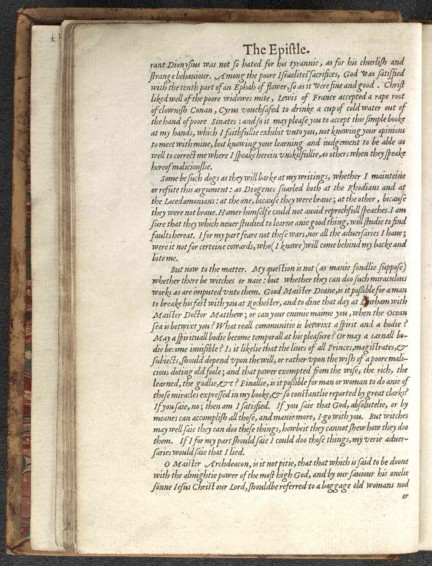 The Epistle.
rant Dionysius was not so hated for his tyrannie, as for his churlish and
strange behaviour. Among the poore Israelites sacrifices, God was satisfied
with the tenth part of an Ephah of flower, so as it were fine and good. Christ
liked well of the poore widowes mite, Lewis of France accepted a rape root
of clownish Conan, Cyrus vouchsafed to drinke a cup of cold water out of
the hand of poore Sinates: and so it may please you to accept this simple booke
at my hands, which I faithfullie exhibit vnto you, not knowing your opinions
to meet with mine, but knowing your learning and iudgement to be able as
well to correct me where I speake herein vnskilfullie, as others when they speake
hereof maliciouslie.
Some be such dogs as they will barke at my writings, whether I mainteine
or refute this argument: as Diogenes snarled both at the Rhodians and at
the Lacedæmonians: at the one, because they were braue; at the other, because
they were not braue. Homer himselfe could not auoid reprochfull speaches. I am
sure that they which neuer studied to learne anie good thing, will studie to find
faults hereat. I for my part feare not these wars, nor all the aduersaries I haue;
were it not for certeine cowards, who (I knowe) will come behind my backe and
bite me.
But now to the matter. My question is not (as manie fondlie suppose)
whether there be witches or naie: but whether they can doo such miraculous
works as are imputed vnto them. Good Maister Deane, is it possible for a man
to breake his fast with you at Rochester, and to dine that day at Durham with
Maister Doctor Matthew; or can your enimie maime you, when the Ocean
sea is betwixt you? What reall communitie is betwixt a spirit and a bodie?
May a spirituall bodie become temporall at his pleasure? Or may a carnall bo-
die become inuisible? Is it likelie that the liues of all Princes, magistrates, &
subiects, should depend vpon the will, or rather vpon the wish of a poore mali-
cious doting old foole; and that power exempted from the wise, the rich, the
learned, the godlie, &c? Finallie, is it possible for man or woman to do anie of
those miracles expressed in my booke, & so constantlie reported by great clarks?
If you saie, no; then am I satisfied. If you saie that God, absolutelie, or by
meanes can accomplish all those, and manie more, I go with you. But witches
may well saie they can doo these things, howbeit they cannot shew how they doo
them. If I for my part should saie I could doo those things, my verie aduer-
saries would saie that I lied.
O Maister Archdeacon, is it not pitie, that that which is said to be doone
with the almightie power of the most high God, and by our sauiour his onelie
sonne Iesus Christ our Lord, should be referred to a baggage old womans nod
or